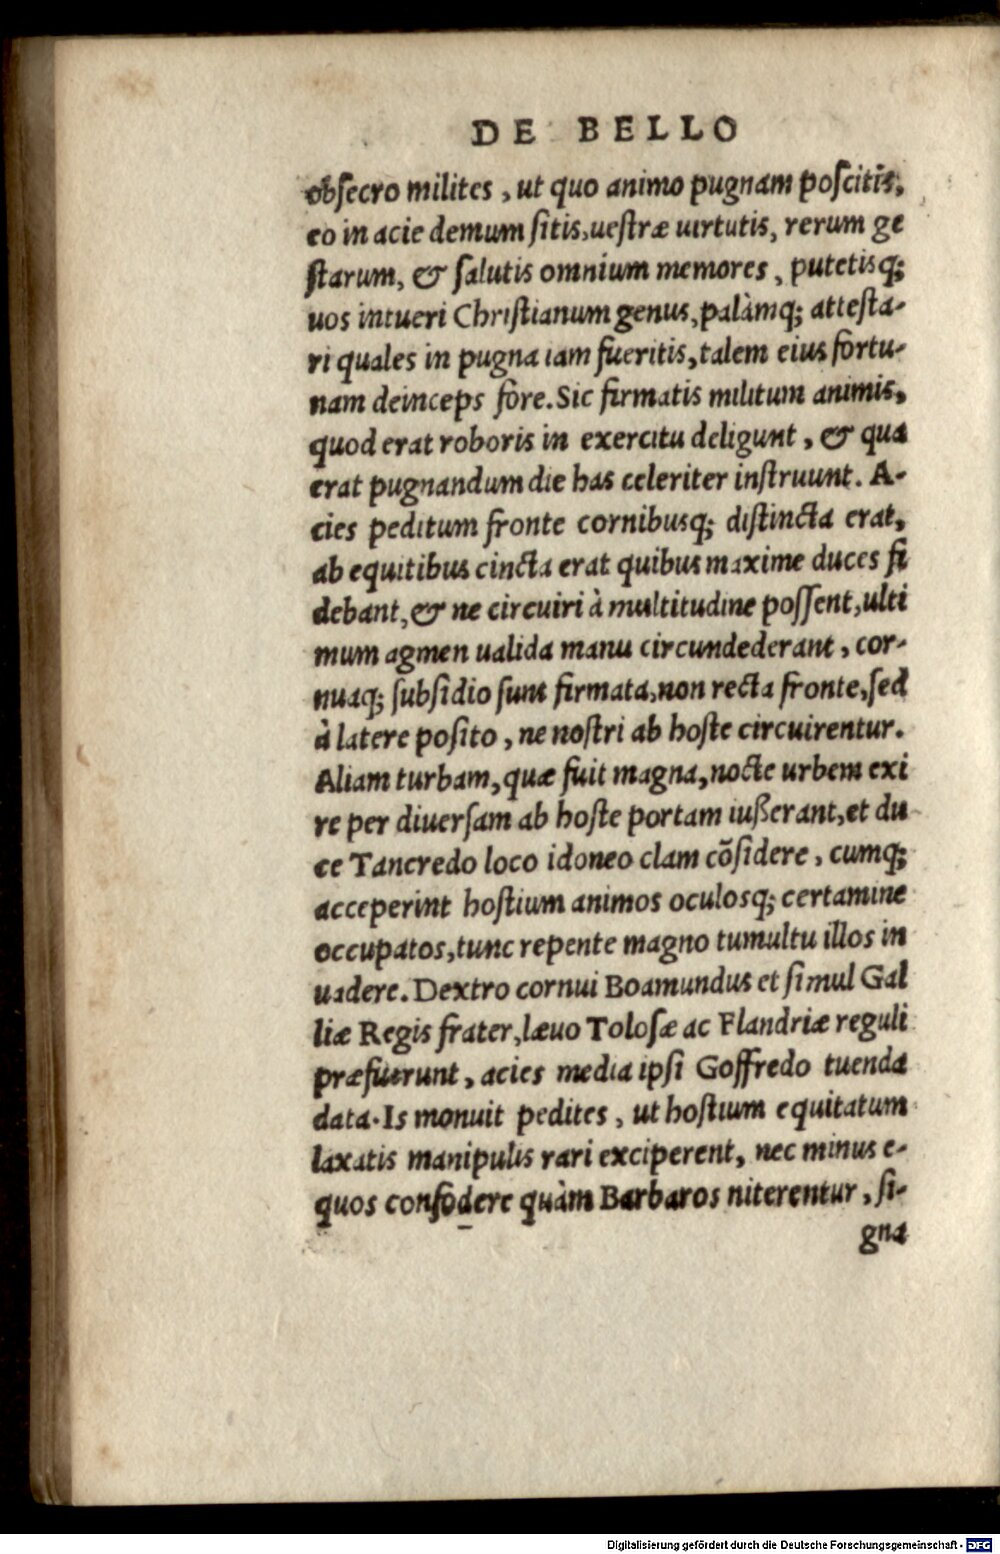 DE BELLO
obsecro milites, ut quo animo pugnam poscitis,
eo in acie demum sitis, uestræ uirtutis, rerum ge
starum, & salutis omnium memores, putetisq;
uos intueri Christianum genus, palàmq; attesta-
ri quales in pugna iam fueritis, talem eius fortu-
nam deinceps fore. Sic firmatis militum animis,
quod erat roboris in exercitu deligunt, & qua
erat pugnandum die has celeriter instruunt. A-
cies peditum fronte cornibusq; distincta erat,
ab equitibus cincta erat quibus maxime duces fi
debant, & ne circuiri à multitudine possent, ulti
mum agmen ualida manu circundederant, cor-
nuaq; subsidio sunt firmata, non recta fronte, sed
à latere posito, ne nostri ab hoste circuirentur.
Aliam turbam, quæ fuit magna, nocte urbem exi
re per diuersam ab hoste portam iußerant, et du
ce Tancredo loco idoneo clam cōsidere, cumq;
acceperint hostium animos oculosq; certamine
occupatos, tunc repente magno tumultu illos in
uadere. Dextro cornui Boamundus et simul Gal
liæ Regis frater, læuo Tolosæ ac Flandriæ reguli
præfuerunt, acies media ipsi Goffredo tuenda
data. Is monuit pedites, ut hostium equitatum
laxatis manipulis rari exciperent, nec minus e-
quos confodere quàm Barbaros niterentur, si-
gna
Digitalisierung gefördert durch die Deutsche Forschungsgemeinschaft - DFG